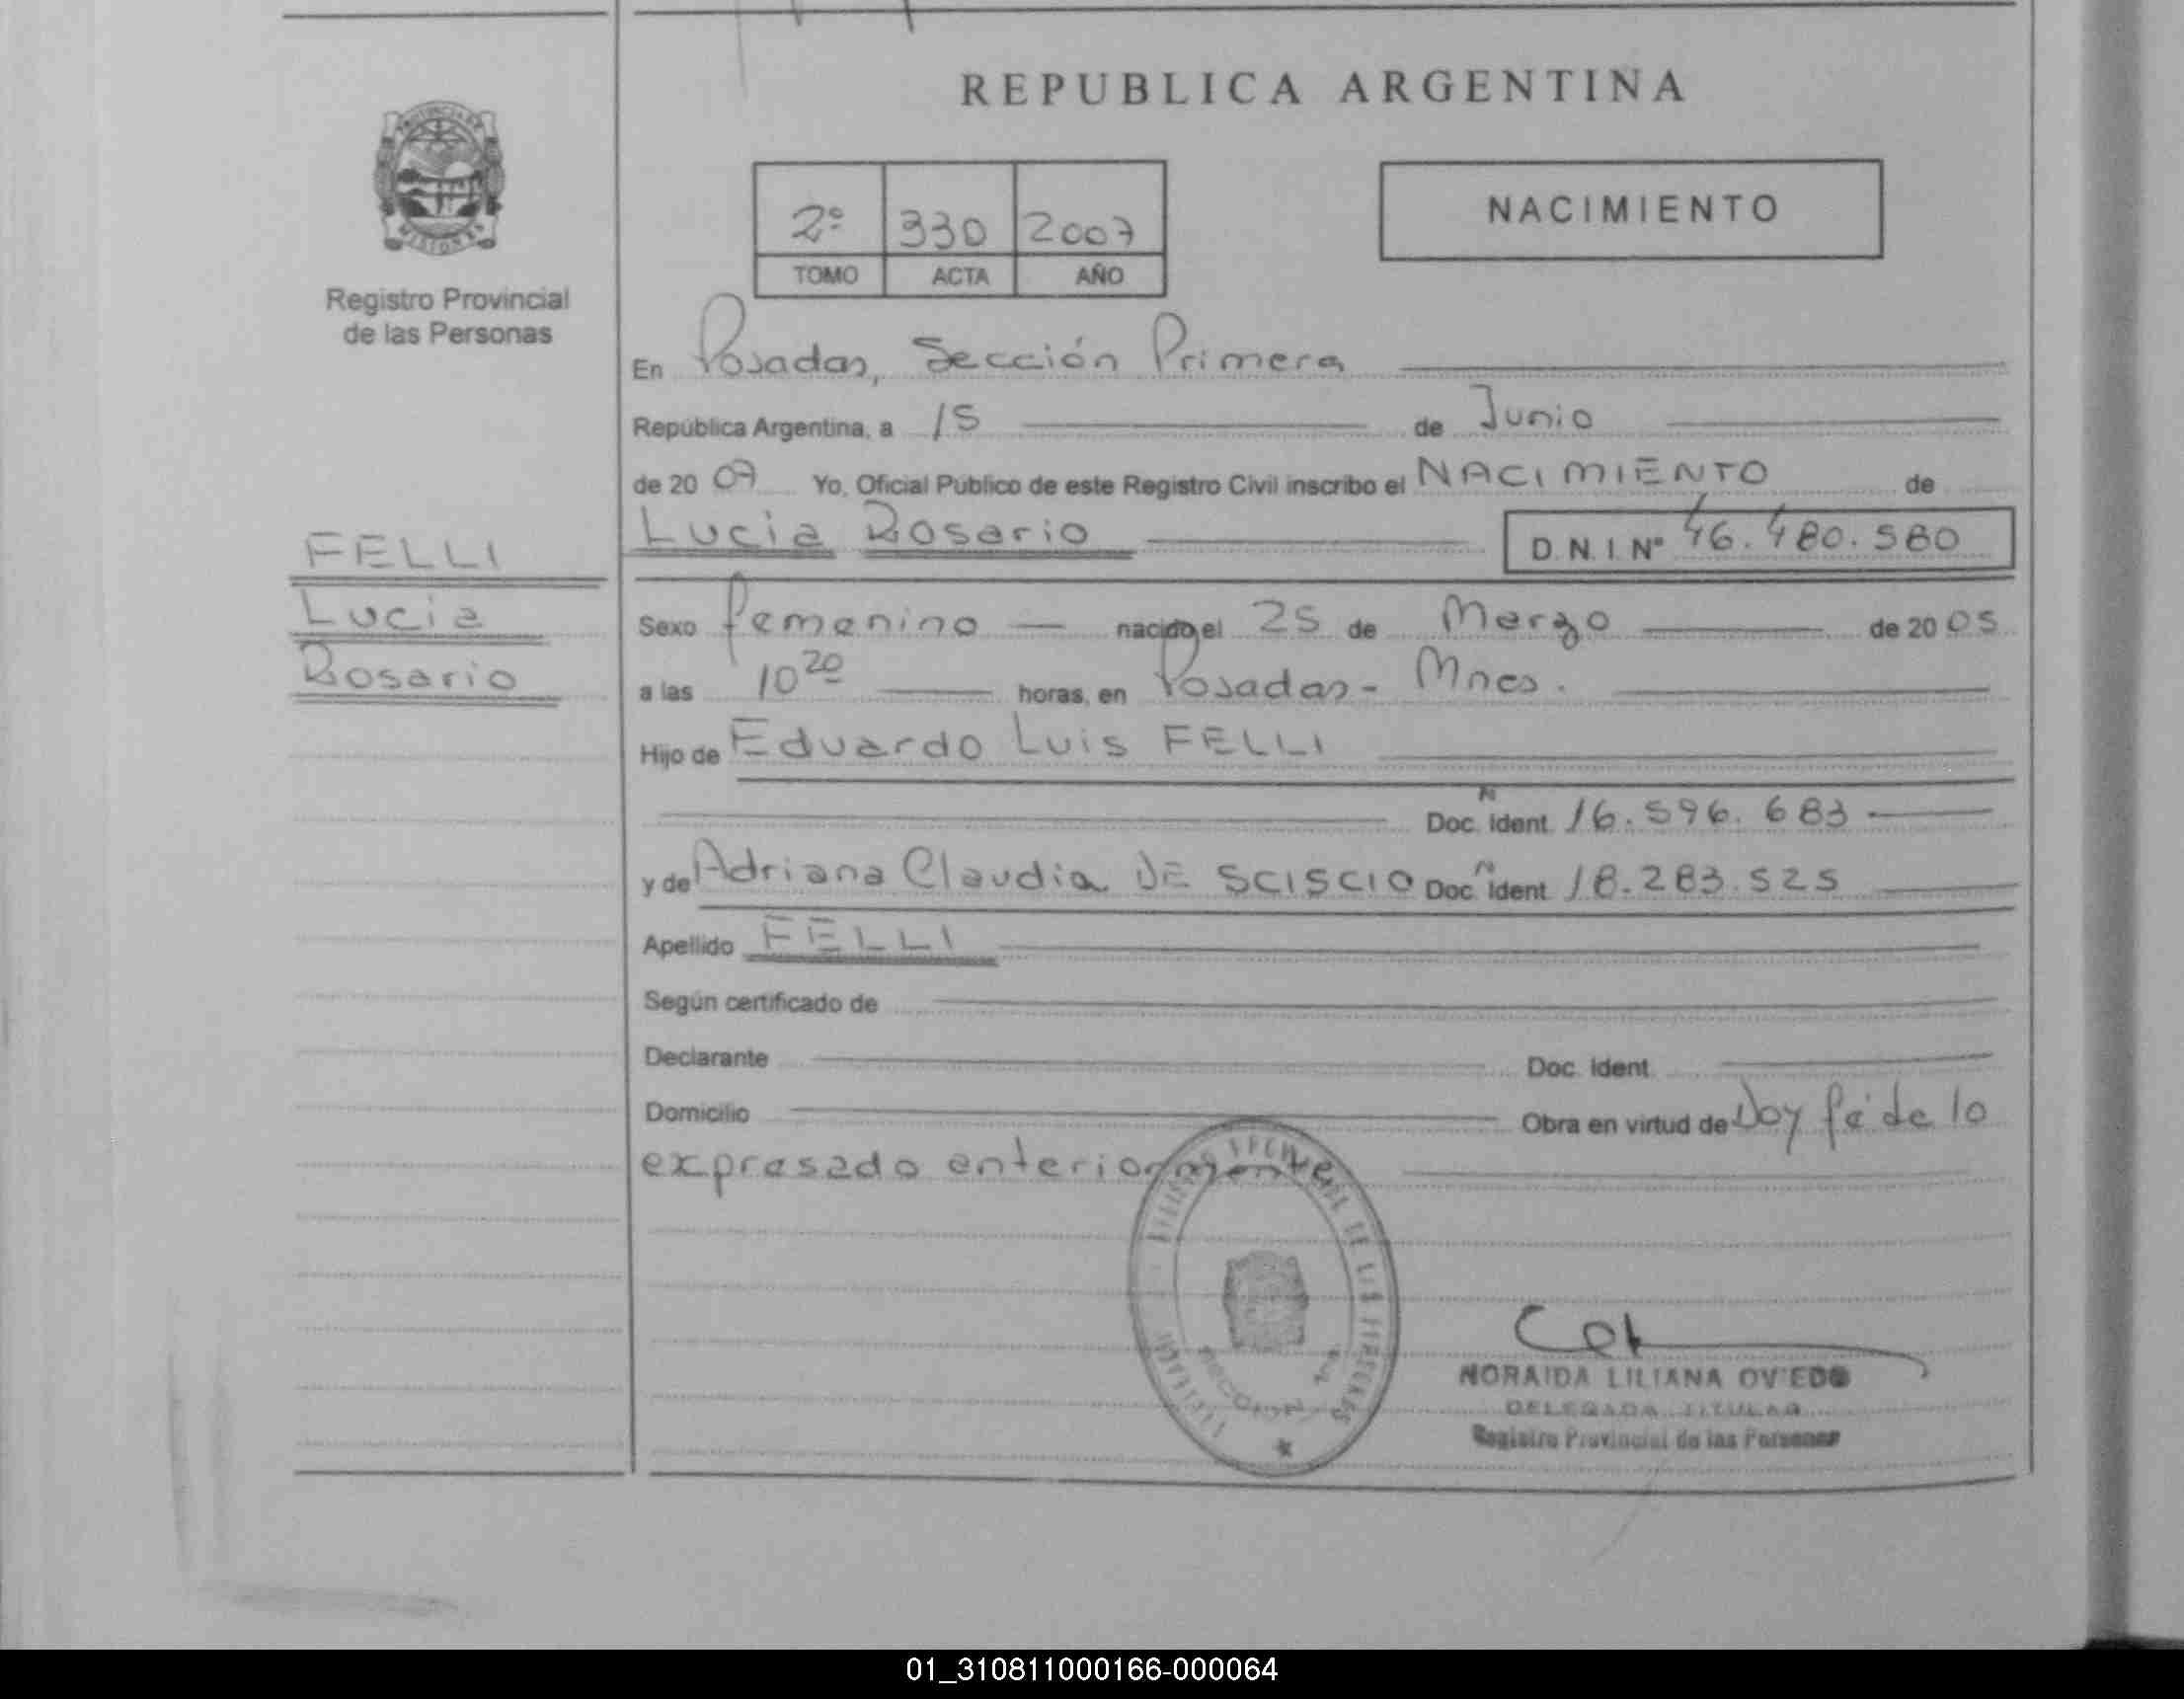 REPUBLICA ARGENTINA
PROVINCIA DE
MISIONES
Registro Provincial
de las Personas
2º 330 2007
TOMO ACTA AÑO
NACIMIENTO
En Posadas, Sección Primera
República Argentina, a 15 de Junio
de 20 07 Yo, Oficial Público de este Registro Civil inscribo el NACIMIENTO de
Lucia Rosario D.N.I. Nº 46.480.580
FELLI
Lucia
Rosario
Sexo femenino nacido el 25 de Marzo de 20 05
a las 10 20 horas, en Posadas - Mnes.
Hijo de Eduardo Luis FELLI
Doc. Ident. 16.596.683
y de Adriana Claudia DE SCISCIO Doc. Ident. 18.283.525
Apellido FELLI
Según certificado de
Declarante Doc. Ident.
Domicilio Obra en virtud de Doy fé de lo
expresado anteriormente
DE LAS PERSONAS
SECCION 1ra
NORAIDA LILIANA OVIEDO
DELEGADA TITULAR
Registro Provincial de las Personas
01_310811000166-000064